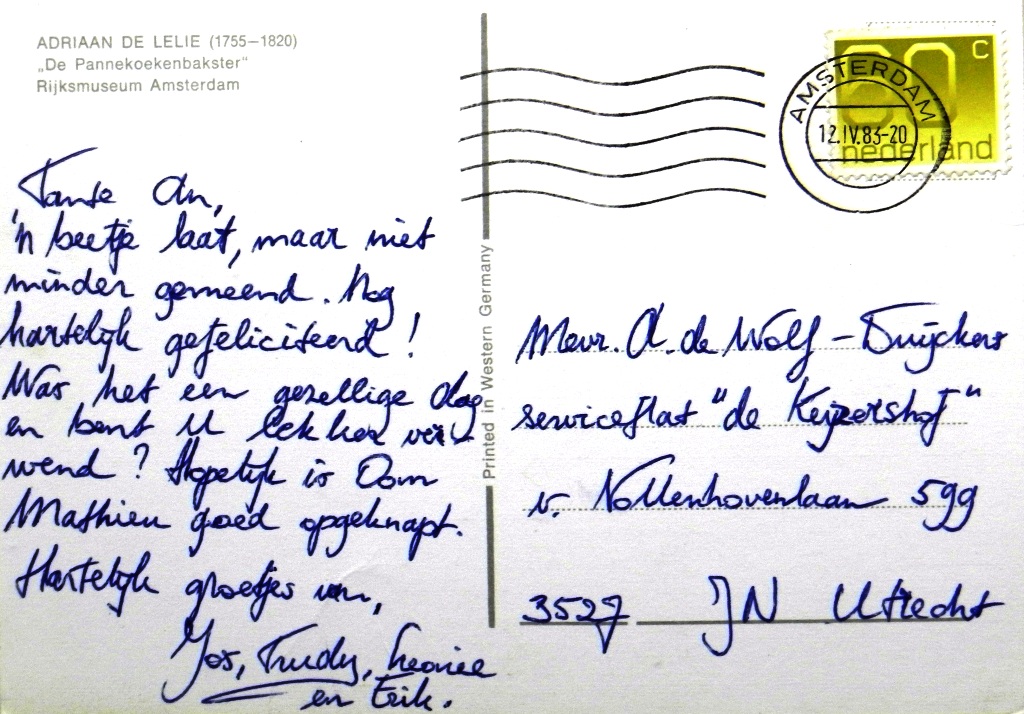 ADRIAAN DE LELIE (1755–1820)
„De Pannekoekenbakster“
Rijksmuseum Amsterdam
Tante An,
'n beetje laat, maar niet
minder gemeend. Nog
hartelijk gefeliciteerd!
Was het een gezellige dag
en bent U lekker ver-
wend? Hopelijk is Oom
Mathieu goed opgeknapt.
Hartelijk groetjes van,
Jos, Trudy, Leonie
en Erik.
Printed in Western Germany
AMSTERDAM
12.IV.83-20
60 c
nederland
Mevr. A. de Wolf - Duijckers
serviceflat "de Keizershof"
v. Vollenhovenlaan 599
3527 JN Utrecht